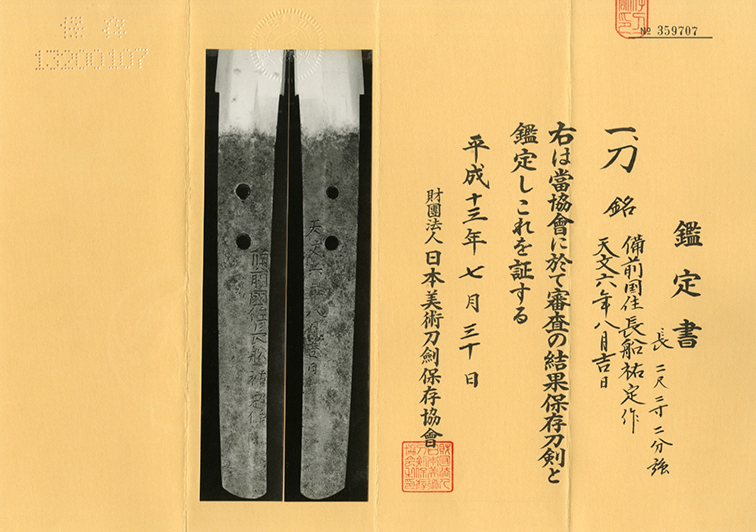 鑑定書
長 二尺二寸二分強
一、刀 銘 備前国住長船祐定作
天文六年八月吉日
右は當協會に於て審査の結果保存刀劍と
鑑定しこれを証する
平成十三年七月三十日
財團法人日本美術刀劍保存協會
№ 359707
保存
13200107
備前國住長船祐定作
天文六年八月吉日